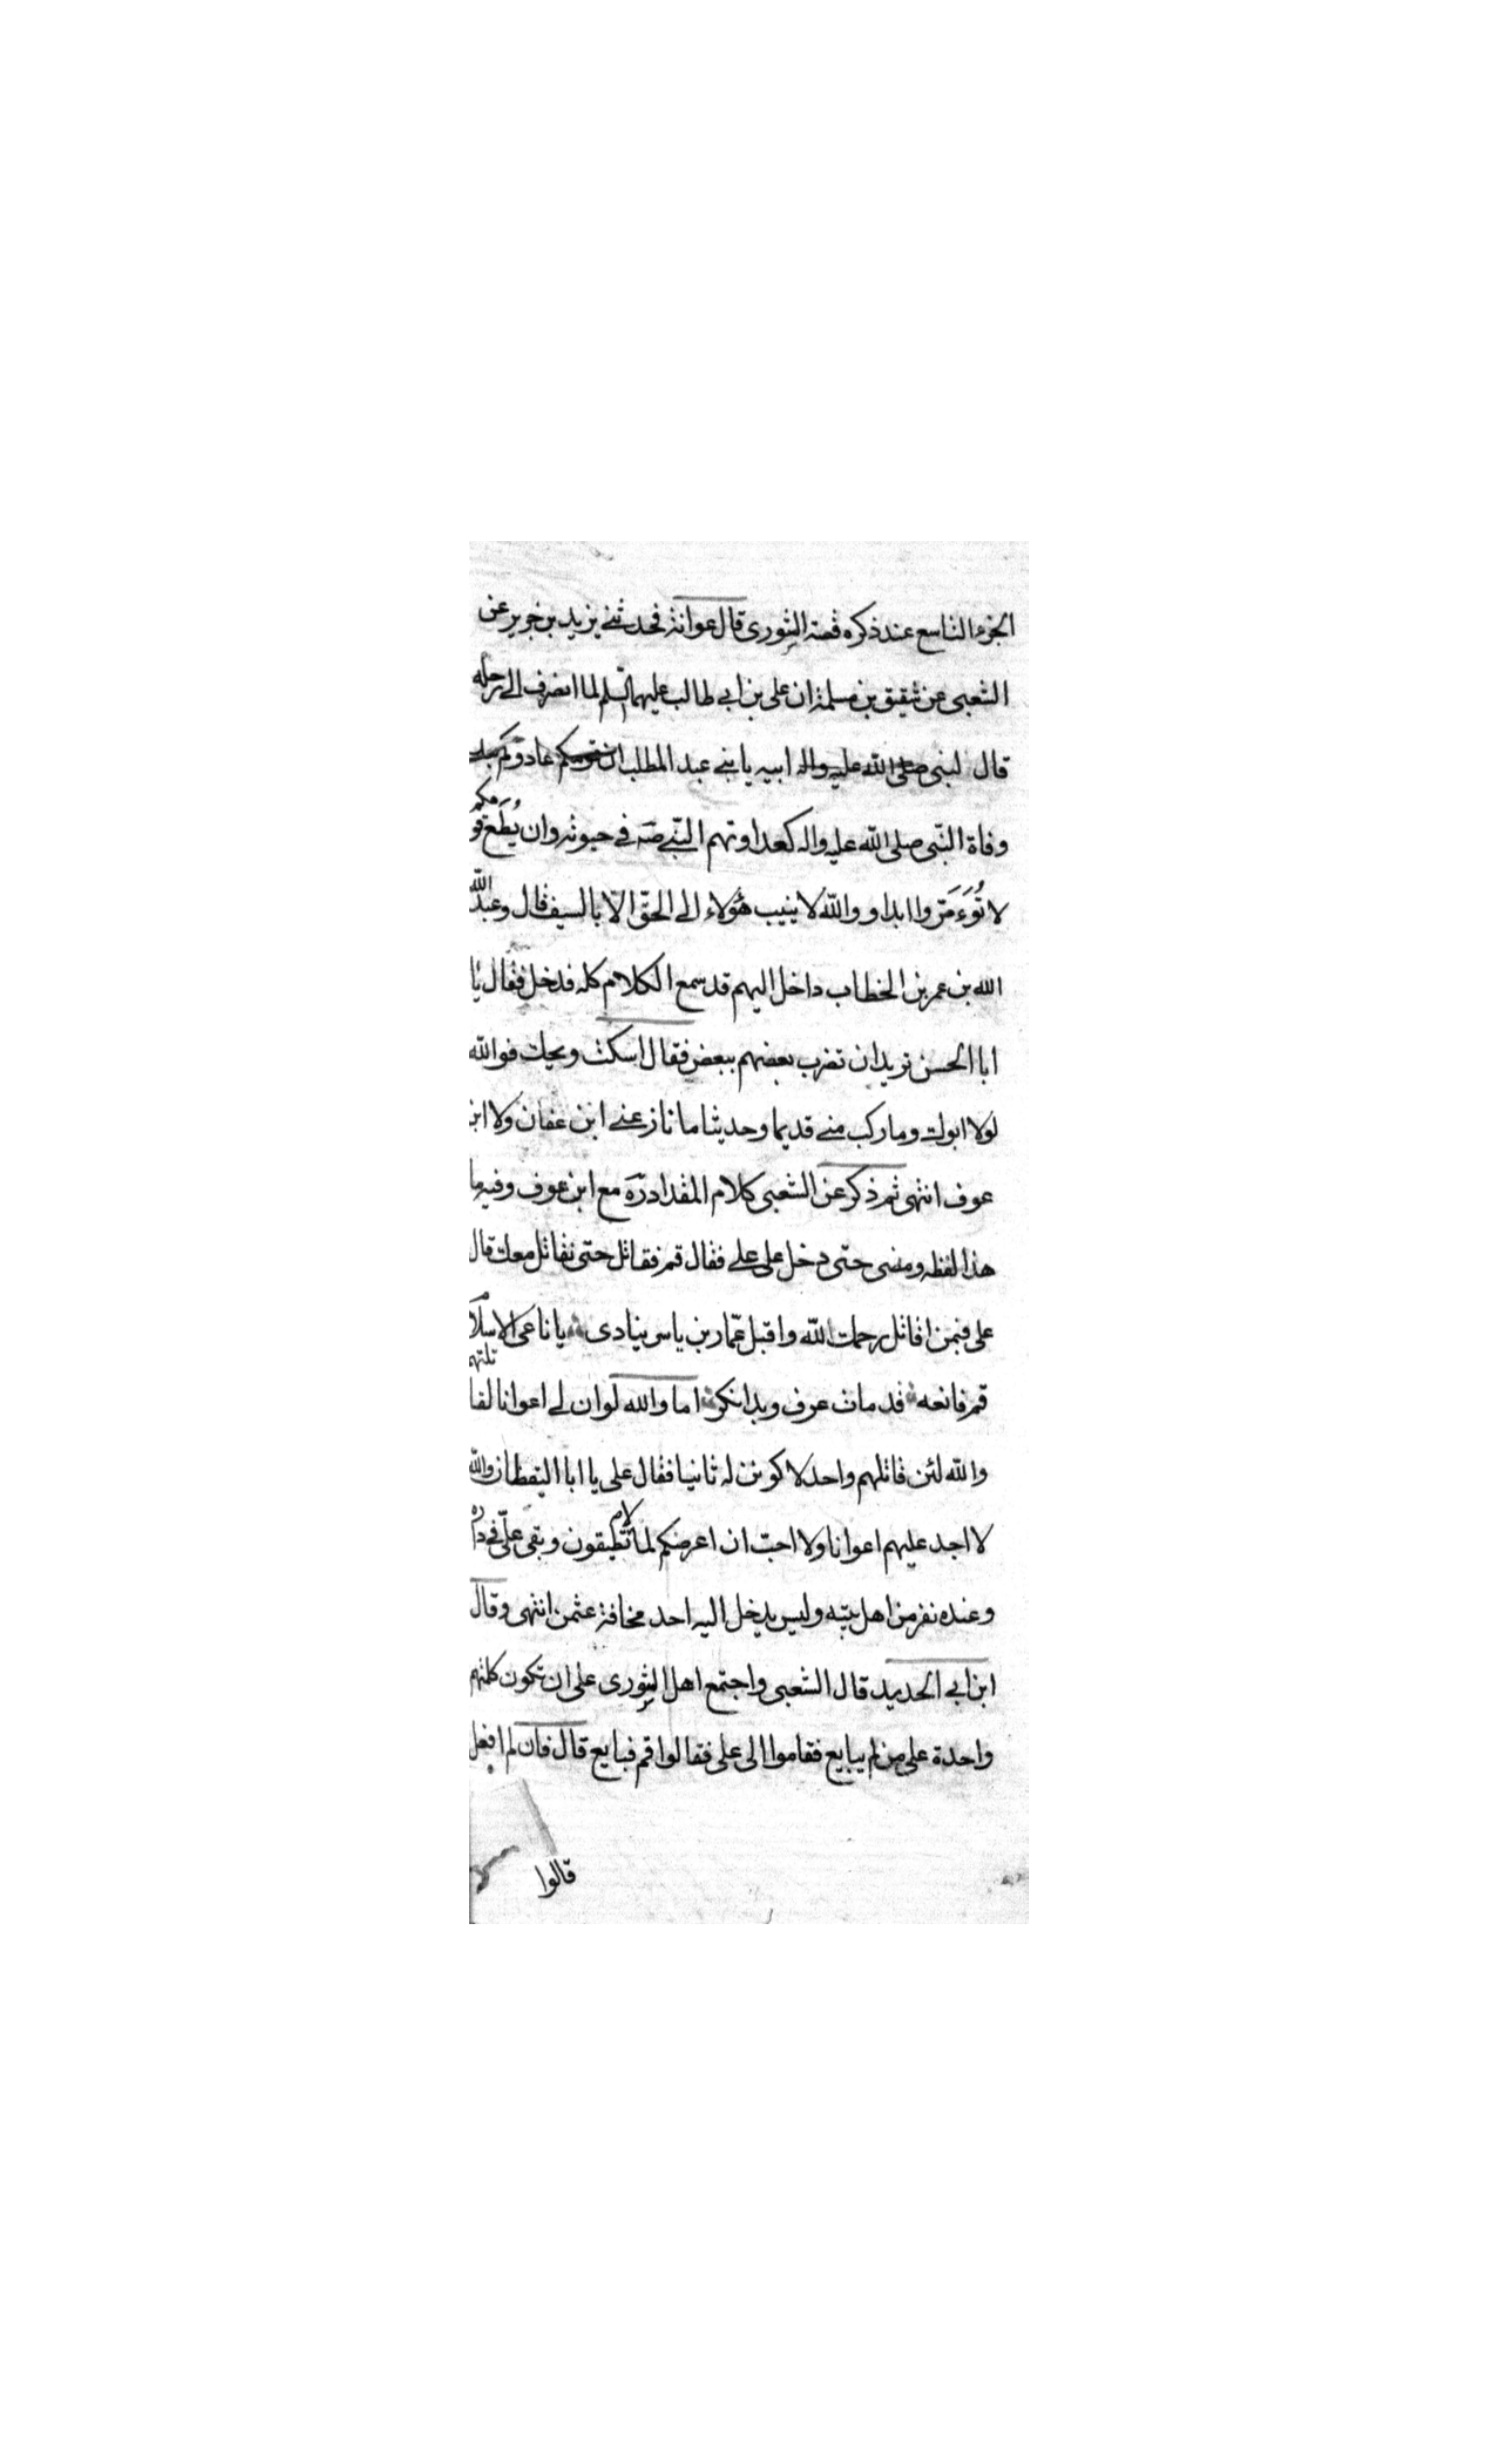 الجزء التاسع عند ذكره قصة الشورى قال عوانة فحدثني يزيد بن جرير عن
الشعبي عن شقيق بن مسلمة ان علي بن ابي طالب عليهما السلم لما انصرف الى رحله
قال لبني ابيه يا بني عبد المطلب ان قومكم عادوكم بعد
وفاة النبي صلى الله عليه واله كعداوتهم النبي صه في حيوته وان يُطَع قومكم
لا تُؤَمَّروا ابدا و والله لا ينيب هؤلاء الى الحق الا بالسيف قال وعبد الله
الله بن عمر بن الخطاب داخل اليهم قد سمع الكلام كله فدخل فقال يا
ابا الحسن تريد ان تضرب بعضهم ببعض فقال اسكت ويحك فوالله
لولا ابوك وما ركب مني قديما وحديثا ما نازعني ابن عفان ولا ابن
عوف انتهى ثم ذكر عن الشعبي كلام المقداد ره مع ابن عوف وفيه ما
هذا لفظه ومضى حتى دخل على علي فقال قم فقاتل حتى نقاتل معك قال
علي فبمن اقاتل رحمك الله واقبل عمار بن ياسر ينادى يا ناعي الاسلام
قم فانعه قد مات عرف وبدا نكر اما والله لو ان لي اعوانا لقاتلتهم
والله لئن قاتلهم واحد لاكونن له ثانيا فقال علي يا ابا اليقظان والله
لا اجد عليهم اعوانا ولا احب ان اعرضكم لما لا تطيقون وبقي علي في داره
وعنده نفر من اهل بيته وليس يدخل اليه احد مخافة عثمن انتهى وقال
ابن ابي الحديد قال الشعبي واجتمع اهل الشورى على ان تكون كلمتهم
واحدة على من لم يبايع فقاموا الى علي فقالوا قم فبايع قال فان لم افعل
قالوا